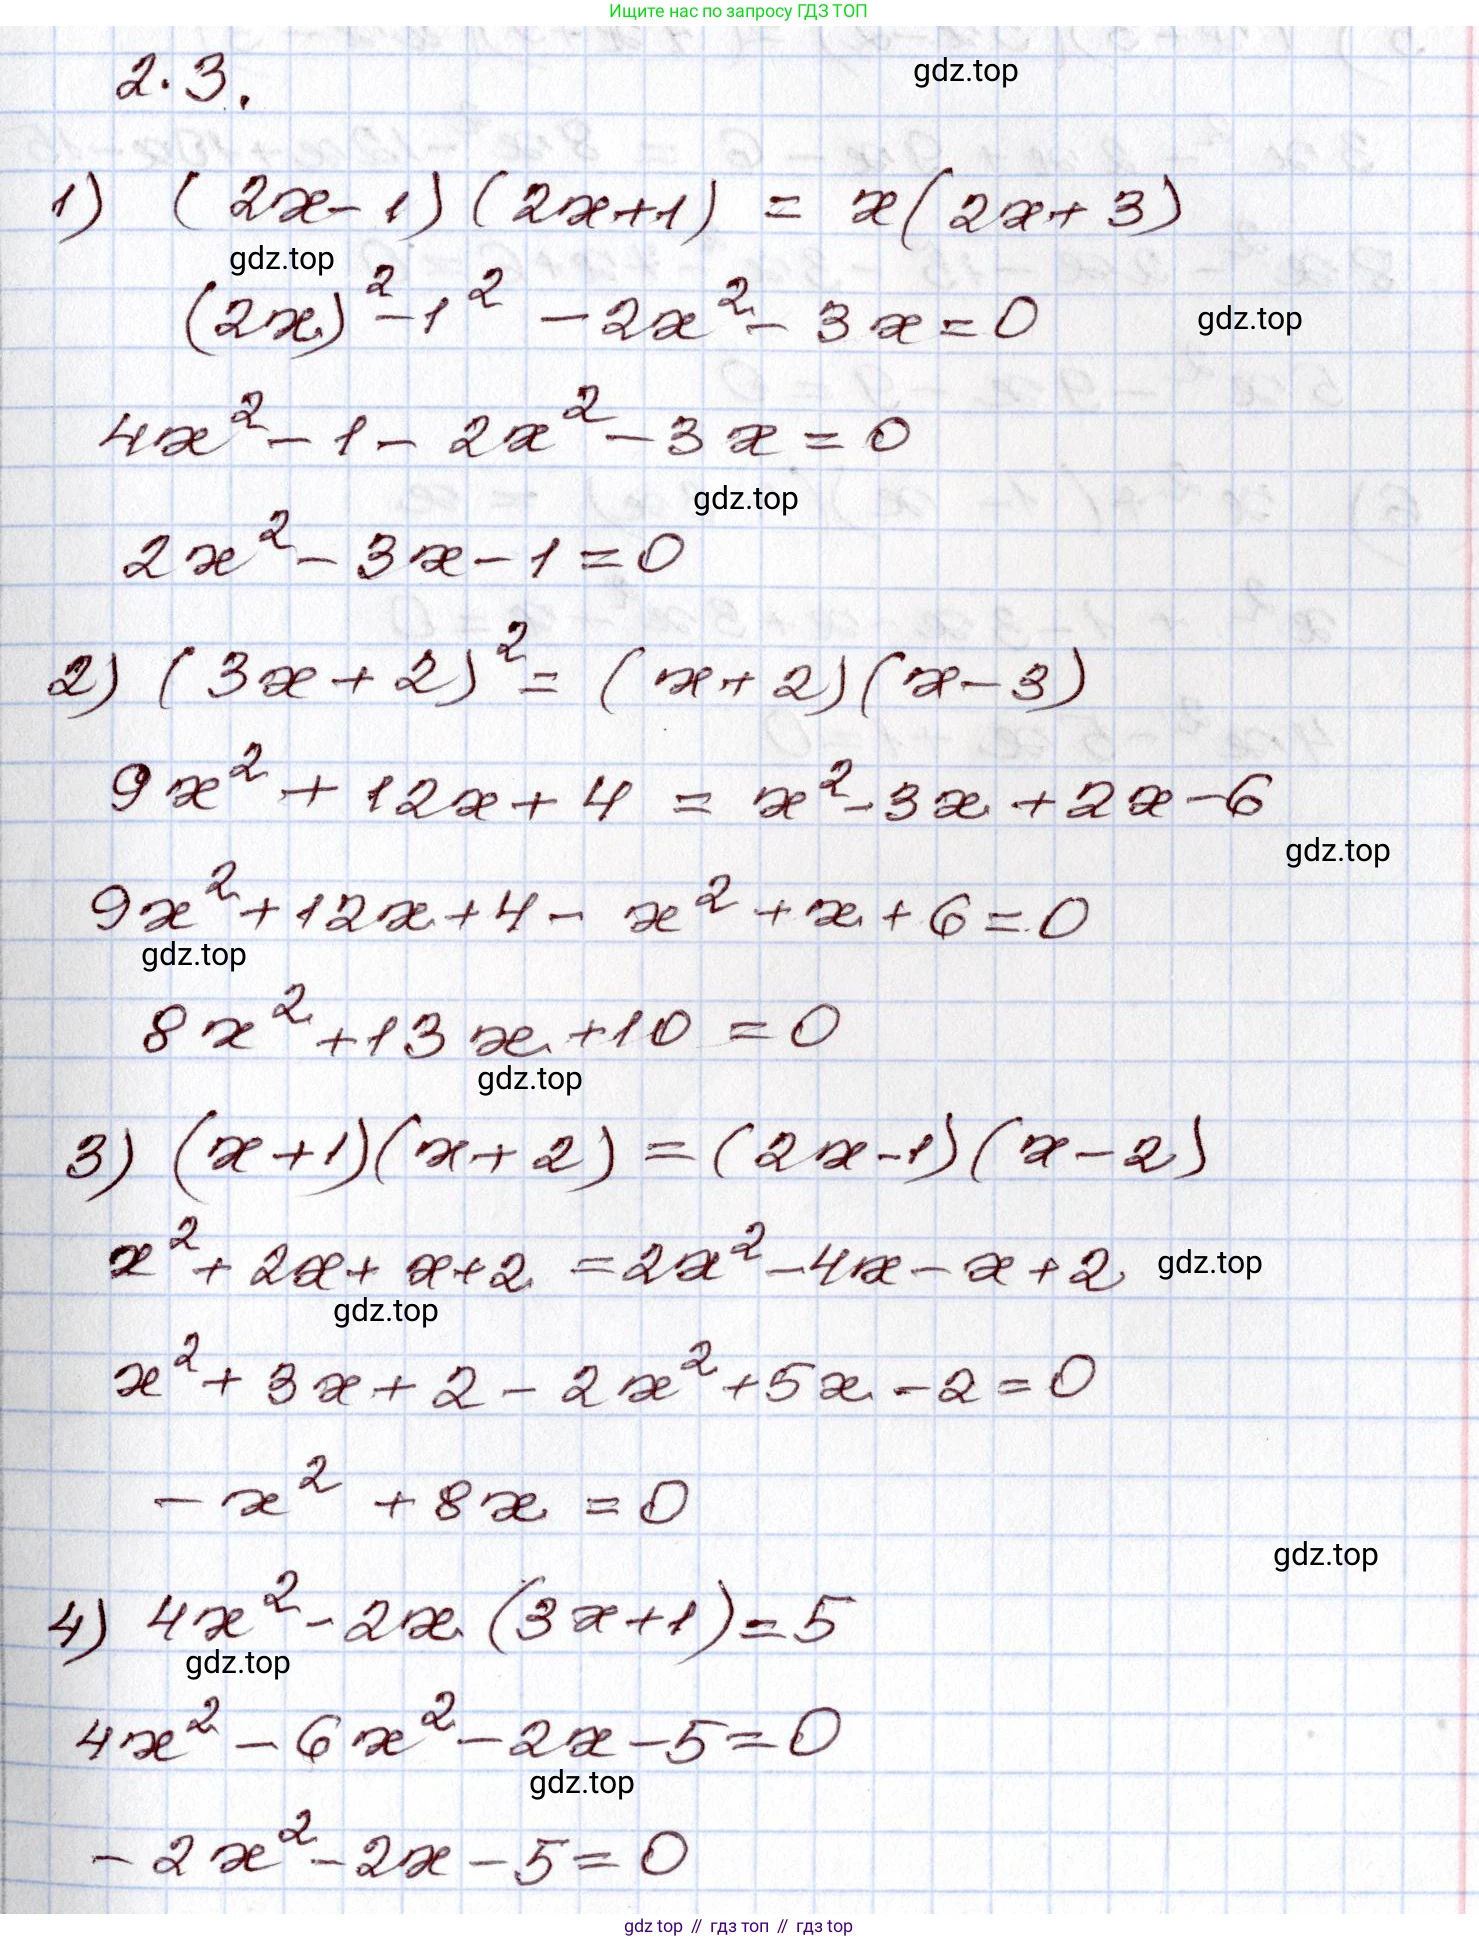 Ищите нас по запросу ГДЗ ТОП
2.3.
gdz.top
1) (2x-1)(2x+1) = x(2x+3)
gdz.top
(2x)²-1² - 2x² - 3x = 0
gdz.top
4x² - 1 - 2x² - 3x = 0
gdz.top
2x² - 3x - 1 = 0
2) (3x+2)² = (x+2)(x-3)
9x² + 12x + 4 = x² - 3x + 2x - 6
gdz.top
9x² + 12x + 4 - x² + x + 6 = 0
gdz.top
8x² + 13x + 10 = 0
gdz.top
3) (x+1)(x+2) = (2x-1)(x-2)
x² + 2x + x + 2 = 2x² - 4x - x + 2
gdz.top
gdz.top
x² + 3x + 2 - 2x² + 5x - 2 = 0
-x² + 8x = 0
gdz.top
4) 4x² - 2x(3x+1) = 5
gdz.top
4x² - 6x² - 2x - 5 = 0
gdz.top
-2x² - 2x - 5 = 0
gdz top // гдз топ // gdz top